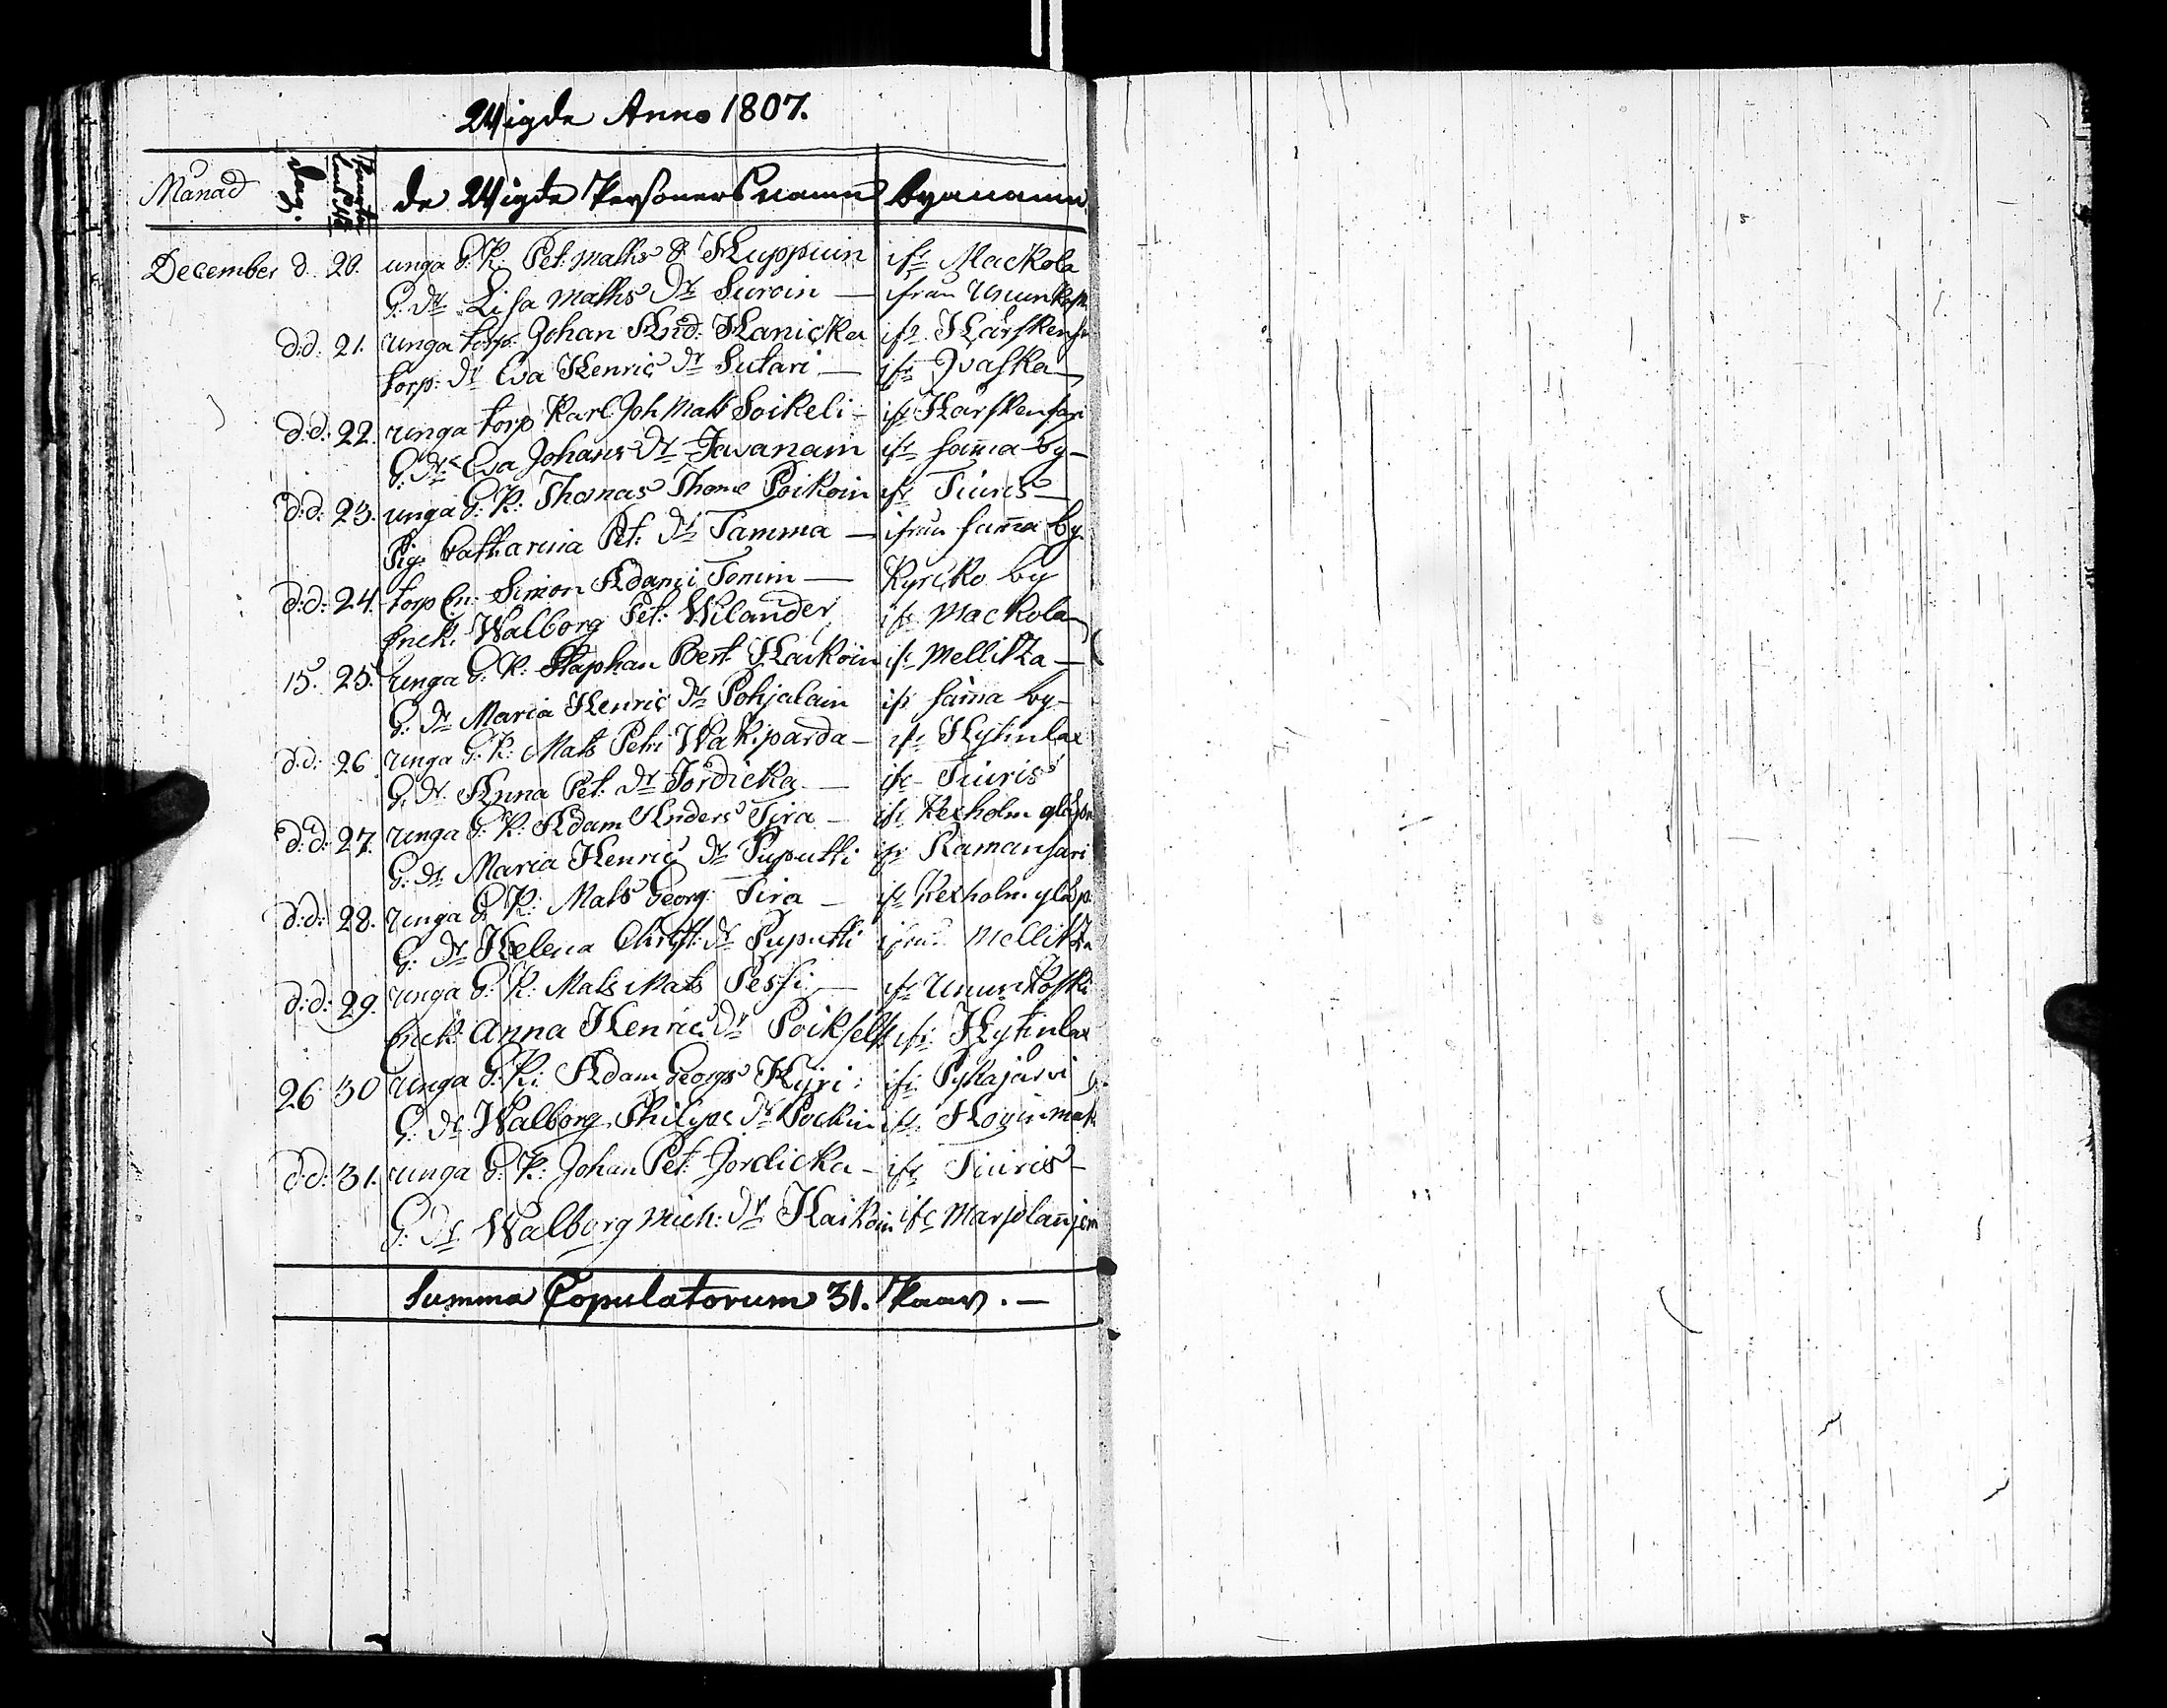 Wigde Anno 1807.
Månad Dag. de Wigde Personers namn byanamn
December d. 20. unga G: K: Pet: Maths S. Huppuin ifr Mackola
G. Dr Lisa Maths Dr Suroin — ifrån Ununkoski
d:d: 21. unga torp: Johan And: Hanicka ifr Hårskensari
torp: Dr Eva Henric Dr Sutari — ifr Ivaska —
d:d: 22. unga torp Karl Joh Mats Soikeli — ifr Hårskensari
G: Dr Eva Johans Dr Iwanain ifr samma by —
d:d: 23. unga G: K: Thomas Thome Poikoin ifr Tiuris —
Pig. Catharina Pet: Dr Tamma — ifrån samma by
d:d: 24. torp En: Simon Adami Tomin — Kyrcko by
Enck: Walborg Pet: Wilander ifr Mackola
15. 25. unga G: K: Staphan Bert Haikoin ifr Mellitza —
G: Dr Maria Henric Dr Pohjalain ifr samma by —
d:d: 26 unga G: K: Mats Petri Wakiparda — ifr Hytinlax
G. Dr Anna Pet: Dr Jordicka — ifr Tiuris
d:d: 27. unga G: K: Adam Anders Tira — ifr Kexholm
G: Dr Maria Henric Dr Puputti ifr Ramansari
d:d: 28. unga G K: Mats Georg: Tira — ifr Kexholm
G: Dr Helena Christ: Dr Puputti ifrån Mellitza
d:d: 29. unga G: K: Mats Mats Pessi — ifr Ununkoski
Enck: Anna Henric Dr Poikselk ifr Hytinlax
26 30 unga G: K: Adam Georgs Kyri: ifr Pyhäjärvi
G: Dr Walborg Philips Dr Pockin ifr
d:d: 31. unga G: K: Johan Pet: Jordicka — ifr Tiuris —
G: Dr Walborg Mich: Dr Haikoin ifr
Summa Copulatorum 31. Paar. —